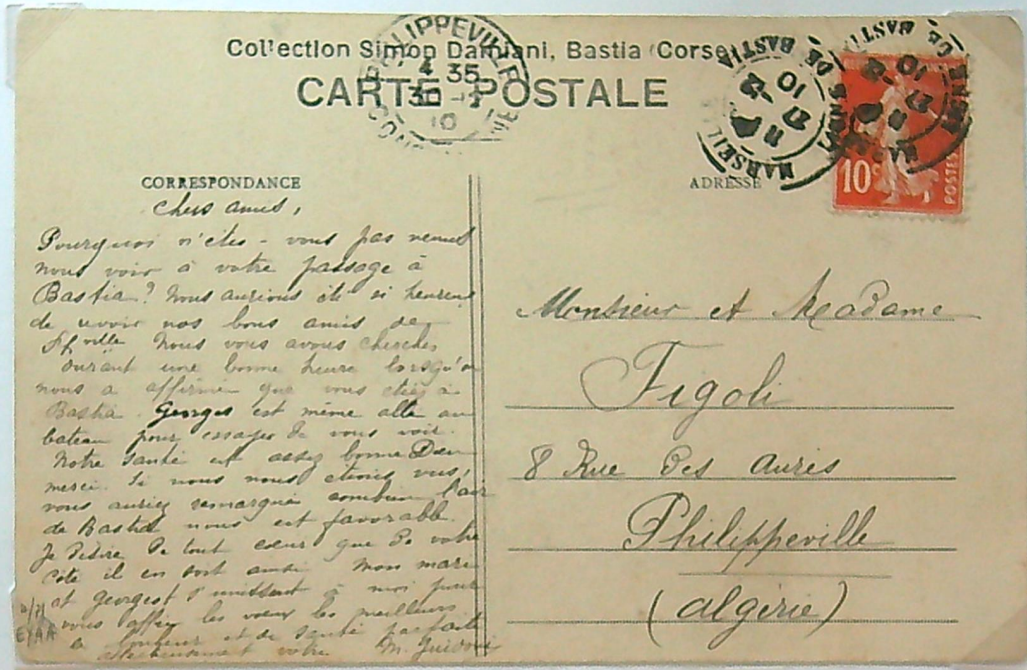 Collection Simon Damiani, Bastia (Corse)
CARTE POSTALE
PHILIPPEVILLE
4 35
30 -12
10
CONSTANTINE
MARSEILLE
DE BASTIA
27 -12
10
10c
POSTES
CORRESPONDANCE
ADRESSE
Chers amis,
Pourquoi n'êtes-vous pas venus
nous voir à votre passage à
Bastia? Nous aurions été si heureux
de revoir nos bons amis de
Ph ville Nous vous avons cherchés
durant une bonne heure lorsqu'on
nous a affirmé que vous étiez à
Bastia. Georges est même allé au
bateau pour essayer de vous voir.
Notre santé est assez bonne Dieu
merci. Si nous nous étions vus,
vous auriez remarqué combien l'air
de Bastia nous est favorable.
Je désire de tout cœur que de votre
côté il en soit ainsi Mon mari
et Georges s'unissent à moi pour
vous offrir les vœux les meilleurs
bonheur et de santé parfaite
votre M. Guidoni
Monsieur et Madame
Figoli
8 Rue des Aurès
Philippeville
(Algérie)